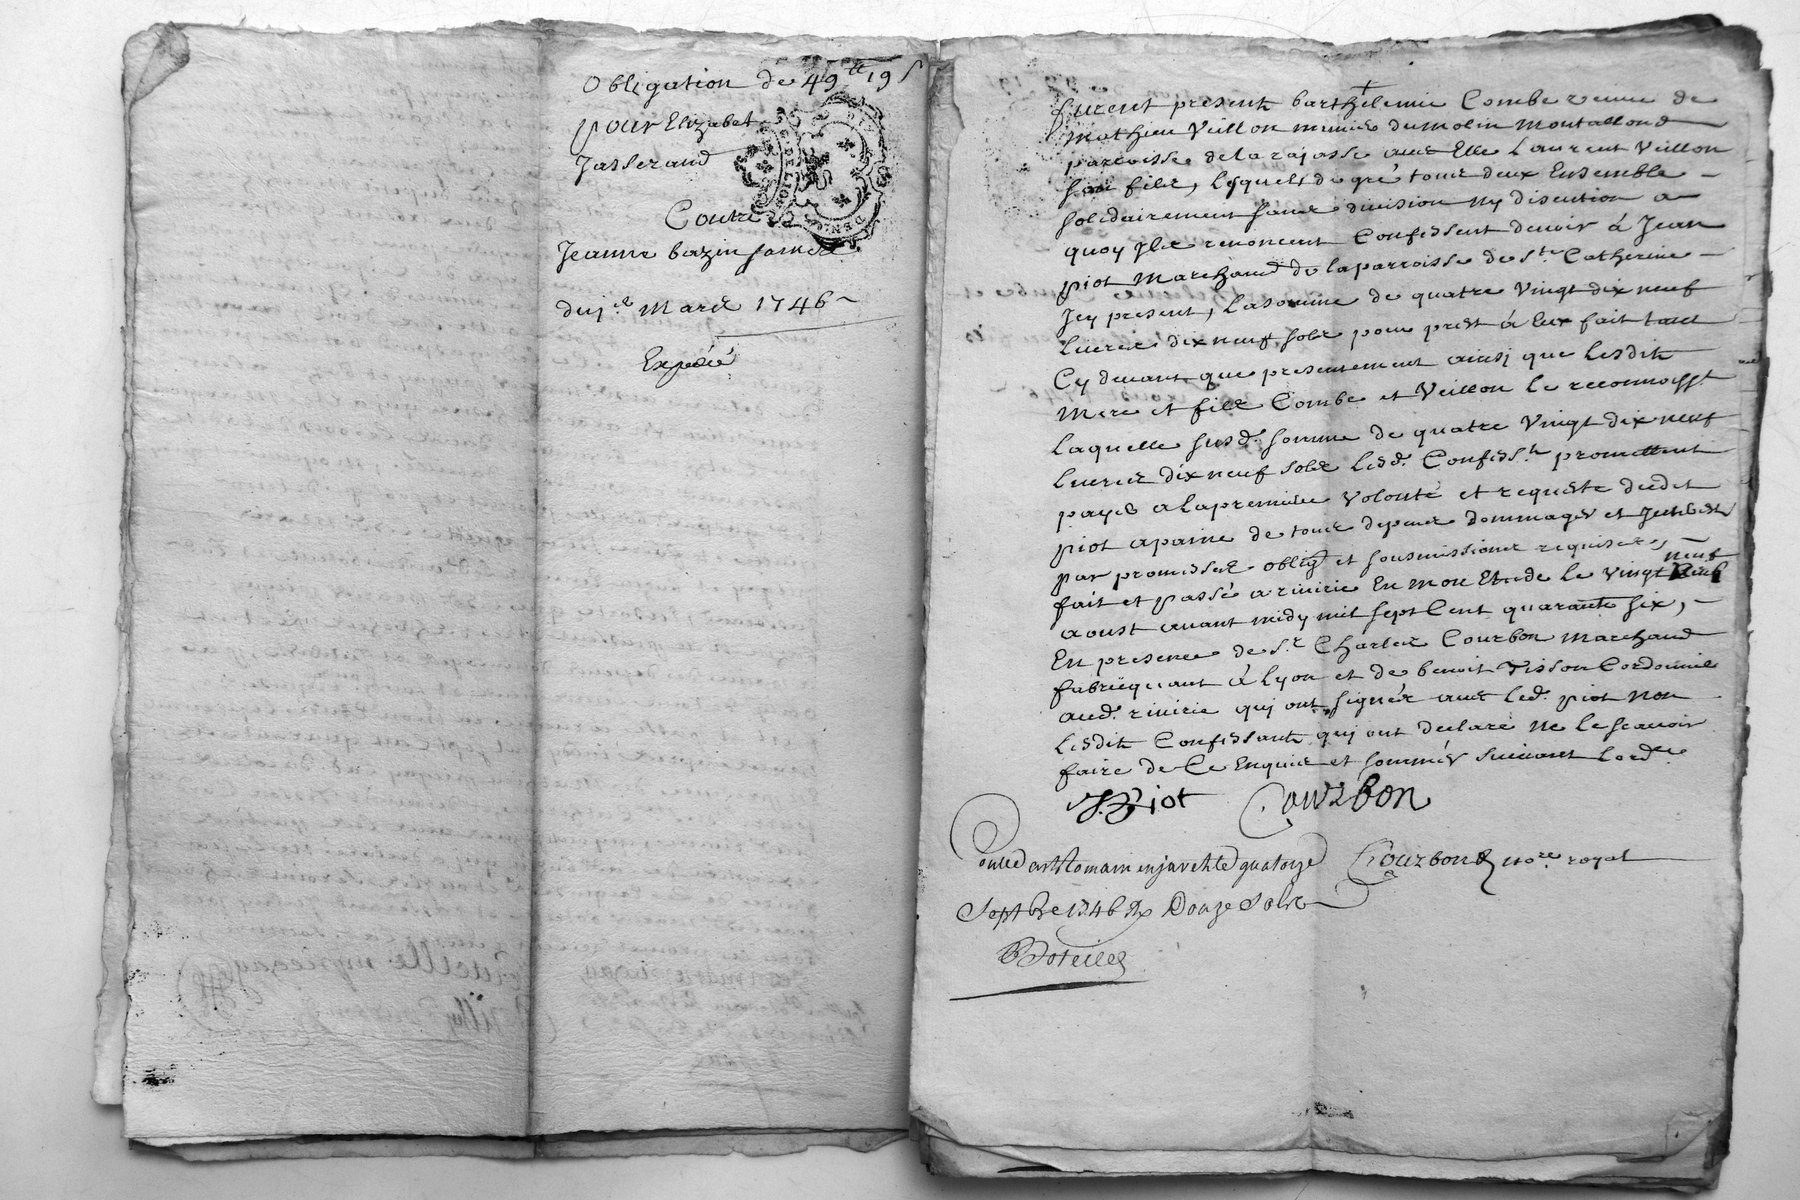 Obligation de 49 tt 19 s
pour Elizabet
Jasserand
Contre
Jeanne bazin
du j.er Mars 1746
Expédié
furent present barthelemie Combe veuve de
Mathieu Veillon munier du molin Montallond
parroisse de la rajasse avec Elle Laurent Veillon
son fils, lesquels de gré tous deux Ensemble
solidairement sans division ny discution a
quoy Ils renoncent Confessent devoir à Jean
piot Marchand de la parroisse de Ste Catherine
Jcy present, la somme de quatre Vingt dix neuf
Livres dix neuf sols pour prest à Eux fait tant
Cy devant que presentement ainsj que lesdits
Mere et fils Combe et Veillon le reconnoisst
laquelle susd. somme de quatre Vingt dix neuf
Livres dix neuf sols lesd. Confessts promettent
payer a la premiere Volonté et requeste dudit
piot a paine de tous depens dommages et Jnterests
par promesses oblig. et sousmissions requises,
fait et passé a rivirie En mon Etude le Vingt neuf
aoust avant midy mil sept Cent quarante six,
En presence de Sr. Charles Courbon Marchand
fabriequant à Lyon et de benoit Tisson Cordonnie
aud. rivirie qui ont signés avec led. piot non
lesdits Confessants qui ont declaré ne le scavoir
faire de Ce Enquis et sommés suivant lord.ce
J. Piot Courbon
Courbon no.re royal
Controllé a St Romain en jarest le quatorze
Septbre 1746 Rx Douze Sols